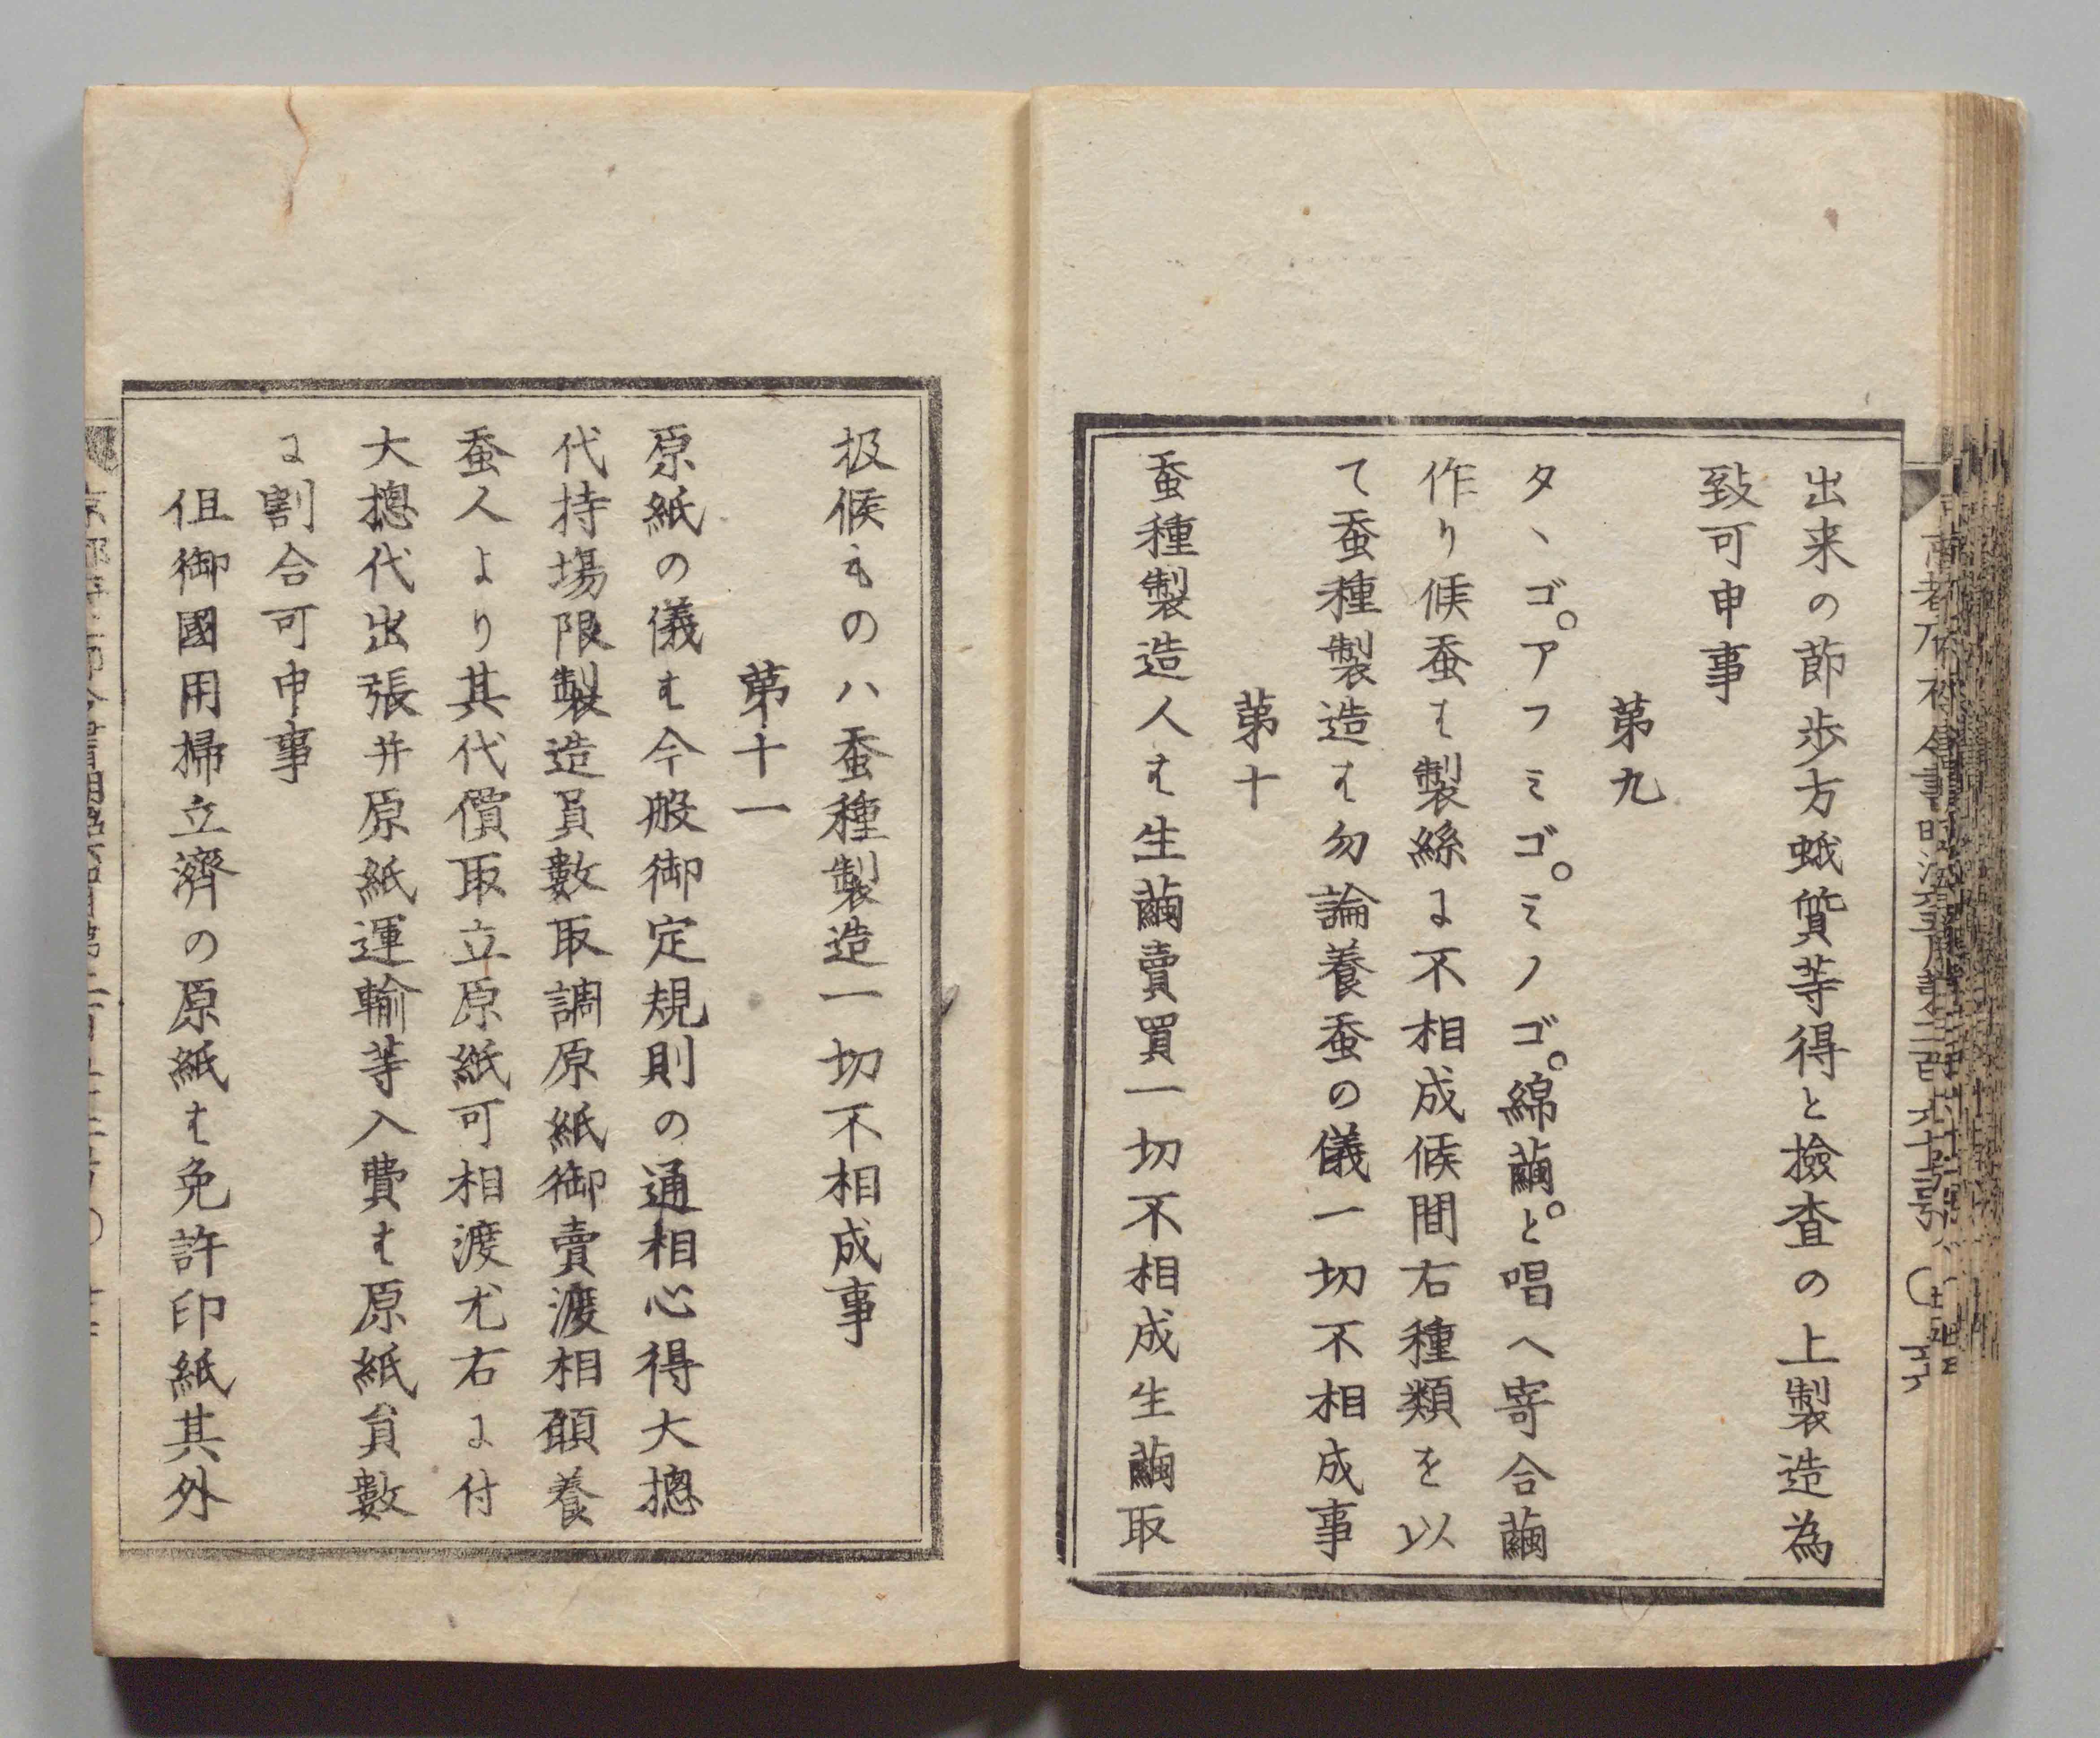 出来の節歩方蛾質等得と撿査の上製造為
致可申事
第九
タヽゴ。アフミゴ。ミノゴ。綿繭。と唱へ寄合繭
作り候蚕は製絲に不相成候間右種類を以
て蚕種製造は勿論養蚕の儀一切不相成事
第十
蚕種製造人は生繭賣買一切不相成生繭取
扱候ものハ蚕種製造一切不相成事
第十一
原紙の儀は今般御定規則の通相心得大摠
代持場限製造員數取調原紙御賣渡相願養
蚕人より其代償取立原紙可相渡尤右に付
大摠代出張并原紙運輸等入費は原紙員數
に割合可申事
但御國用掃立濟の原紙は免許印紙其外